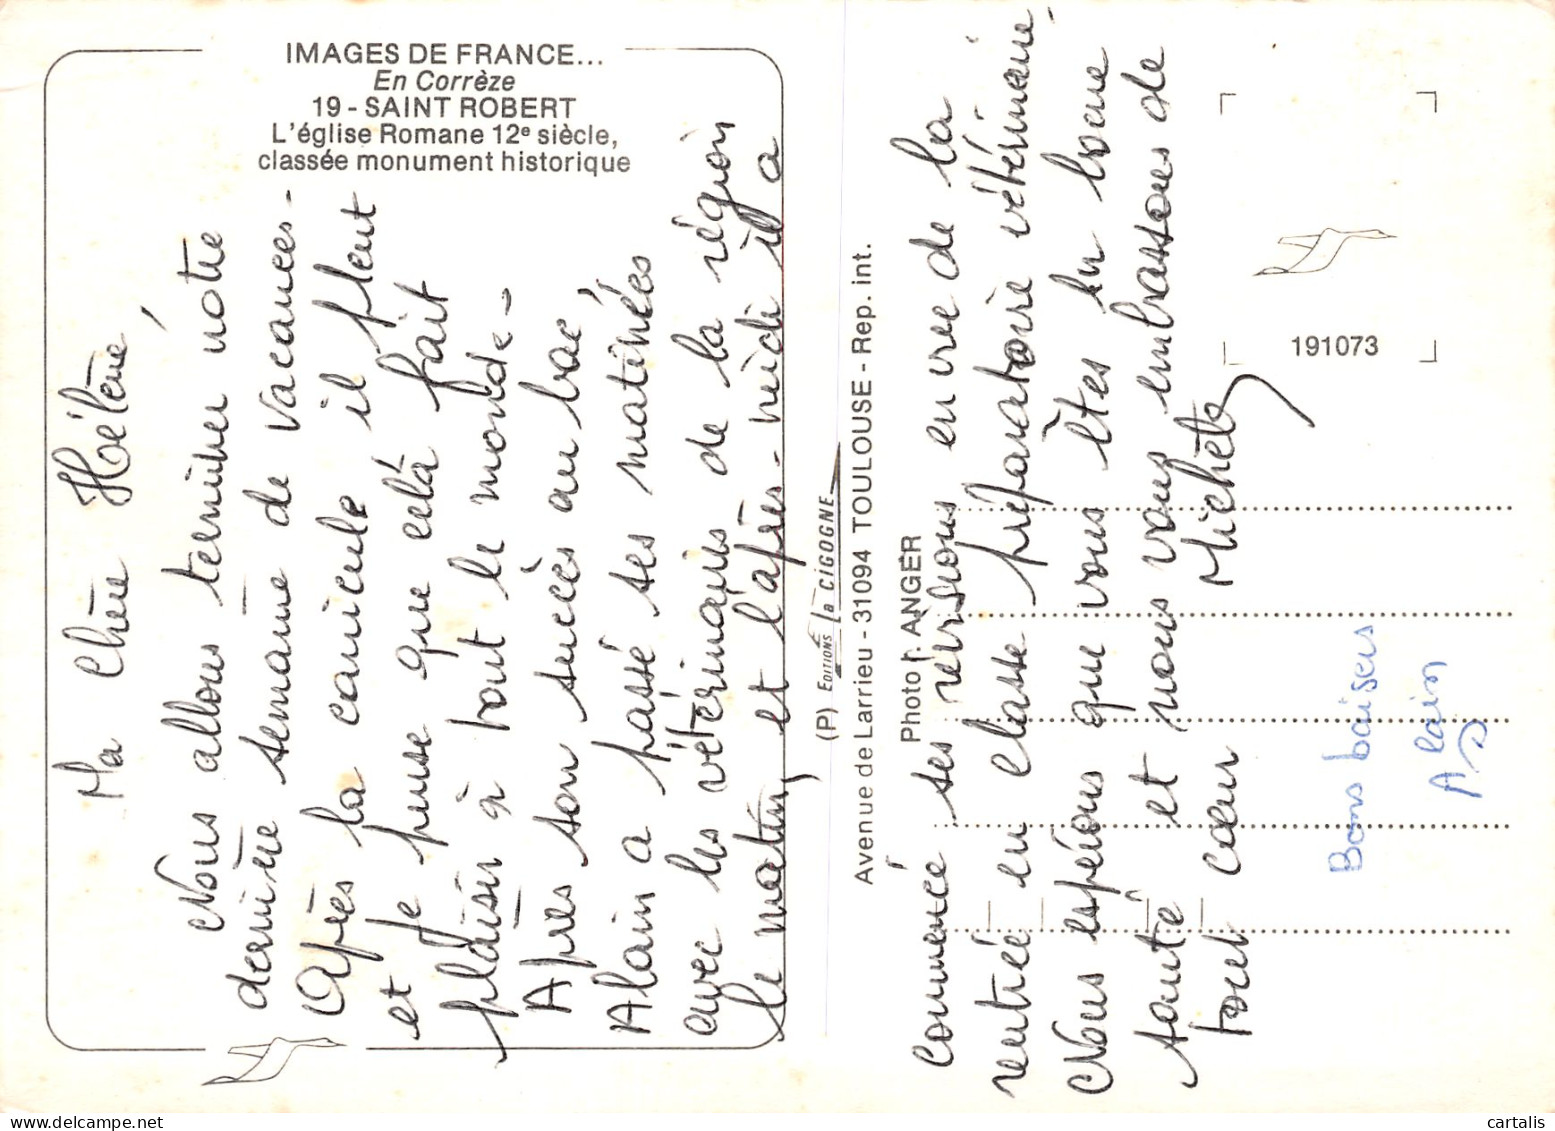 IMAGES DE FRANCE...
En Corrèze
19 - SAINT ROBERT
L'église Romane 12e siècle,
classée monument historique
Ma Chère Hélène,
Nous allons terminer notre
dernière semaine de vacances -
Après la canicule il pleut
et je pense que celà fait
plaisir à tout le monde -
Après son succès au bac,
Alain a passé ses matinées
avec les vétérinaires de la région
le matin, et l'après-midi il a
(P) EDITIONS la CIGOGNE
Avenue de Larrieu - 31094 TOULOUSE - Rep. int.
Photo r. ANGER
191073
commencé ses révisions en vue de la
rentrée en classe préparatoire vétérinaire.
Nous espérons que vous êtes en bonne
santé et nous vous embrassons de
tout cœur
Bons baisers
Alain
cartalis